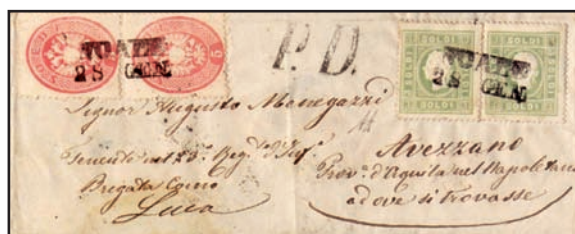 TOARA TOARA
28 GEN. 28 GEN.
P. D.
SOLDI SOLDI
SOLDI SOLDI
5
Signor Augusto Menegazzi
Tenente nel 23º Reg.to d'Inf.
Bregata Como
Luca
Avezzano
Prov.a d'Aquila nel Napoletano
ad ove si trovasse